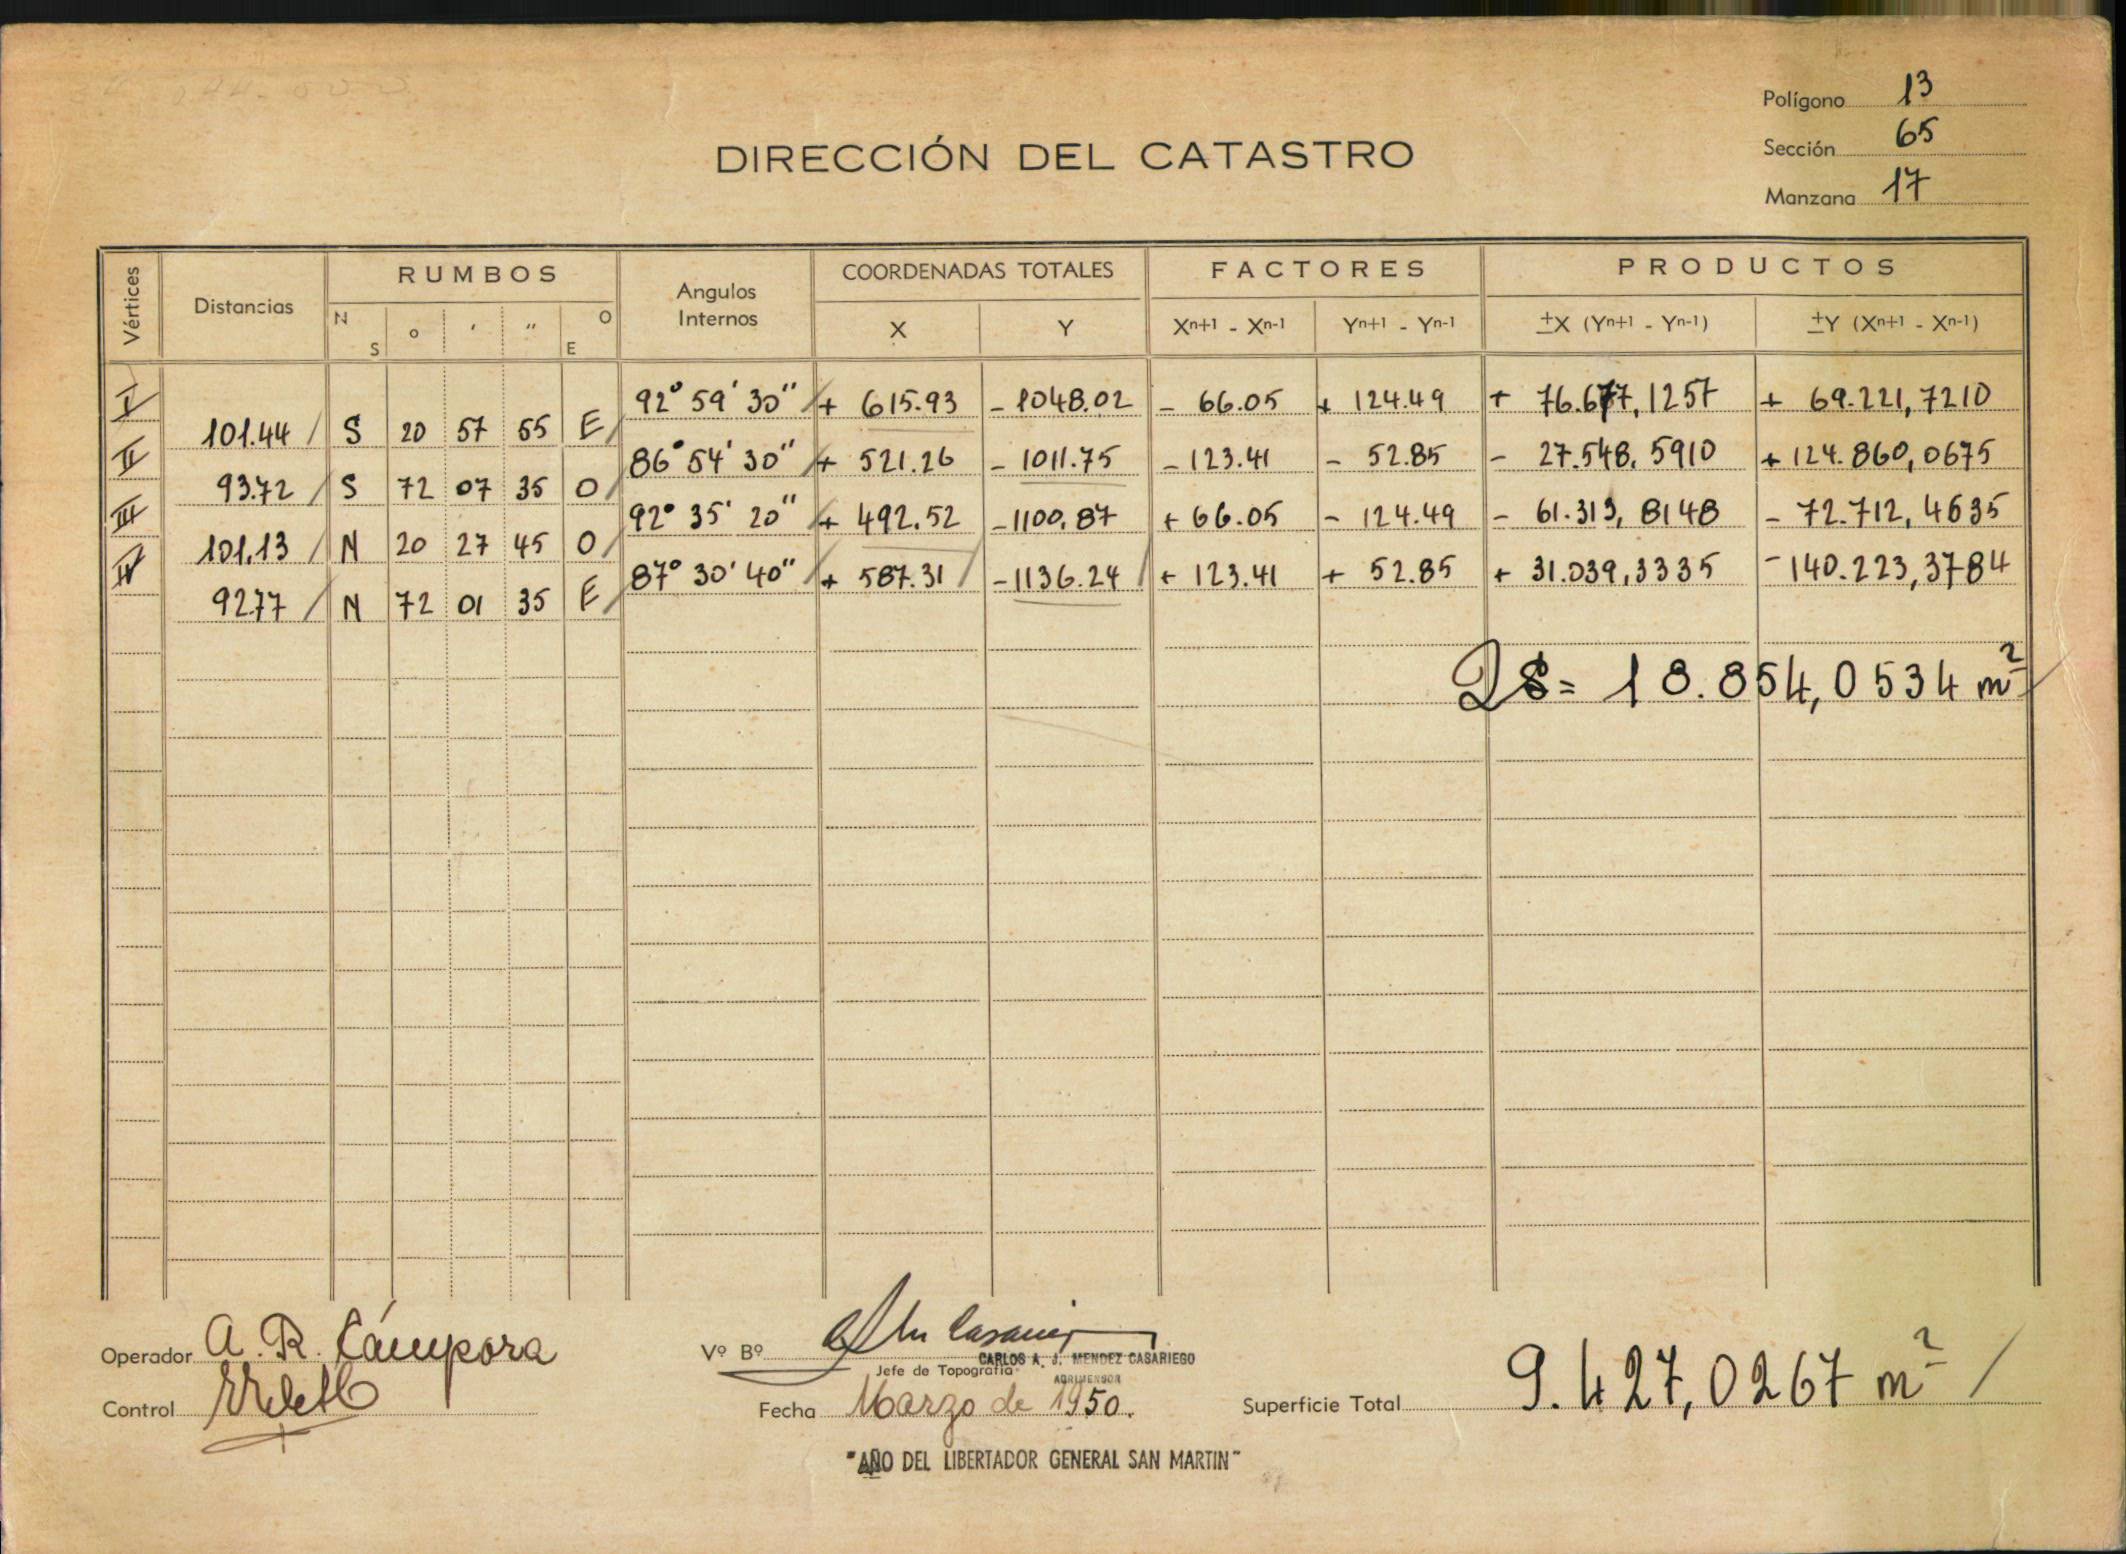 Polígono 13
DIRECCIÓN DEL CATASTRO
Sección 65
Manzana 17
Vértices Distancias RUMBOS N S o ' " O E Angulos Internos COORDENADAS TOTALES X Y FACTORES Xn+1 - Xn-1 Yn+1 - Yn-1 PRODUCTOS ±X (Yn+1 - Yn-1) ±Y (Xn+1 - Xn-1)
I 92° 59' 30" + 615.93 - 1048.02 - 66.05 + 124.49 + 76.677,1257 + 69.221,7210
101.44 S 20 57 55 E
II 86° 54' 30" + 521.26 - 1011.75 - 123.41 - 52.85 - 27.548,5910 + 124.860,0675
93.72 S 72 07 35 O
III 92° 35' 20" + 492.52 - 1100,87 + 66.05 - 124.49 - 61.313,8148 - 72.712,4635
101,13 N 20 27 45 O
IV 87° 30' 40" + 587.31 - 1136.24 + 123.41 + 52.85 + 31.039,3335 - 140.223,3784
92.77 N 72 01 35 E
2S = 18.854,0534 m²
Operador A. R. Cámpora
Vº Bº
CARLOS A. J. MENDEZ CASARIEGO
Jefe de Topografía
AGRIMENSOR
Control
Fecha Marzo de 1950.
Superficie Total 9.427,0267 m²
"AÑO DEL LIBERTADOR GENERAL SAN MARTIN"